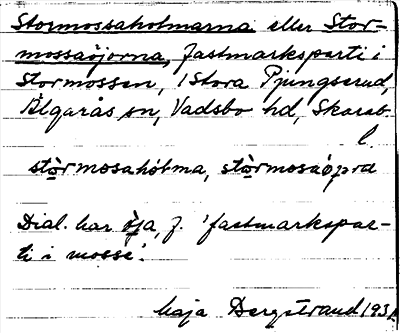 Stormossaholmarna eller Stor-
mossaöjorna, fastmarksparti i
Stormossen, 1 Stora Pjungserud,
Älgarås sn, Vadsbo hd, Skarab.
l.
stòrmosahòlma,
Dial. har öja, f. 'fastmarkspar-
ti i mosse'.
Maja Bergstrand